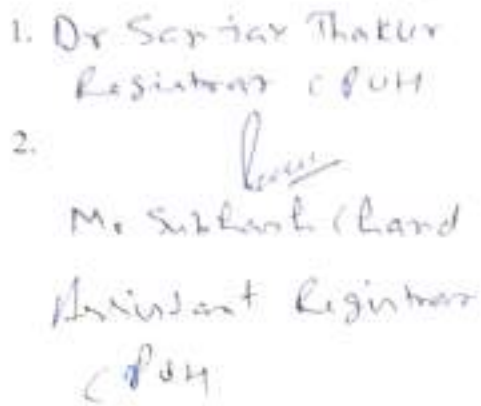 1. Dr Sanjay Thakur
Registrar CPUH
2.
Mr Subhash Chand
Assistant Registrar
CPUH